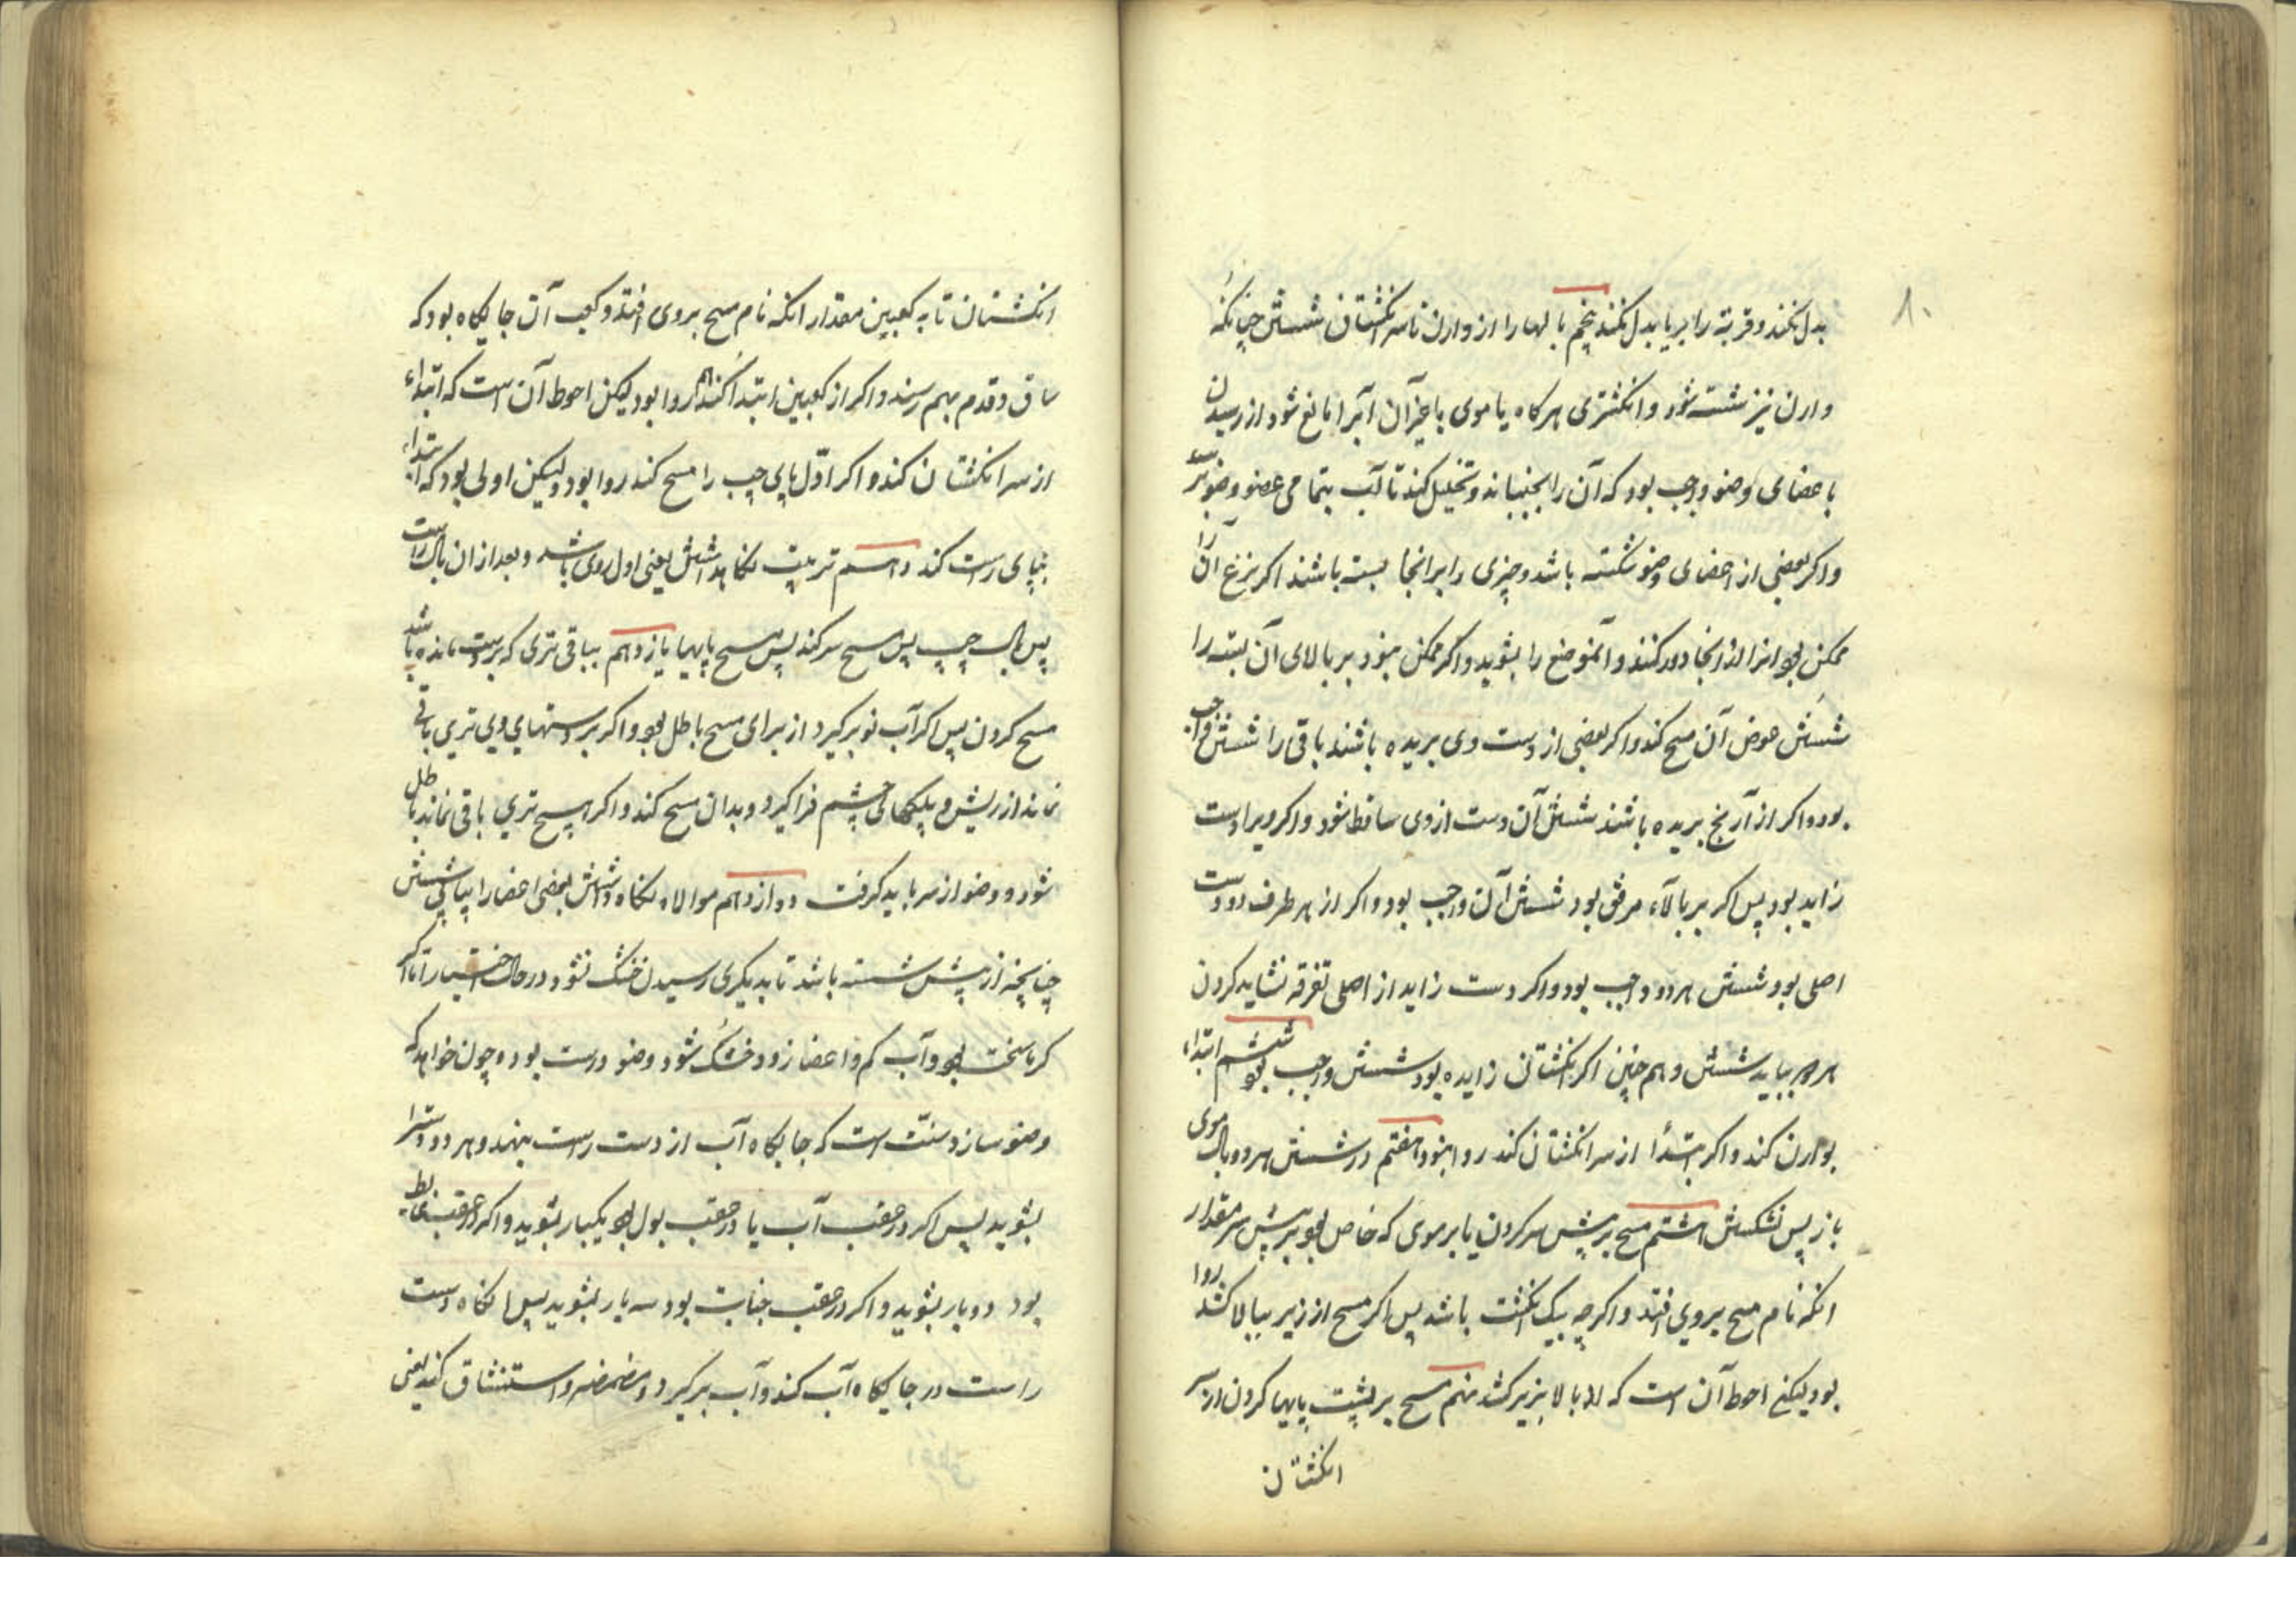 ۸۰
بدل نکند و قربة را بریا بدل نکند پنجم بالها را از وارن تا سر انکشتان شستن چنانکه
وارن نیز شسته شود و انکشتری هرکاه یا موی یا غیر آن آبرا مانع شود از رسیدن
باعضای وضو واجب بود که آن را بجنباند و تخلیل کند تا آب بتمامی عضو وضو رسد
واکر بعضی از اعضای وضو شکسته باشد و چیزی را برانجا بسته باشند اکر نزع آن را
ممکن بود انرا از انجا دور کنند و آنموضع را بشوید و اکر ممکن نبود بر بالای آن بسته را
شستن عوض آن مسح کند و اکر بعضی از دست وی بریده باشند باقی را شستن واجب
بود و اکر از آرنج بریده باشند شستن آن دست ازوی ساقط شود و اکر ویرا دست
زاید بود پس اکر بر بالاء مرفق بود شستن آن واجب بود و اکر از هر طرف دو دست
اصلی بود شستن هر دو واجب بود و اکر دست زاید از اصلی تفرقه نشاید کردن
هر دو بباید شستن و هم چنین اکر انکشتان زایده بود شستن واجب بود ششم ابتداء
بوارن کند و اکر ابتدأ از سر انکشتان کند روا نبود هفتم در شستن هر دو بال موی
باز پس نشکستن هشتم مسح بر پیش سر کردن یا بر موی که خاص بود بر پیش سر مقدار
انکه نام مسح بروی افتد و اکرچه بیک انکشت باشد پس اکر مسح از زیر ببالا کشد روا
بود لیکن احوط آن است که از بالا بزیر کشد نهم مسح بر پشت پایها کردن از سر
انکشتان
انکشتان تا به کعبین مقدار انکه نام مسح بروی افتد و کعب آن جایکاه بود که
ساق و قدم بهم رسند و اکر از کعبین ابتدا کند هم روا بود لیکن احوط آن است که ابتداء
از سر انکشتان کند و اکر اوّل پای چپ را مسح کند روا بود ولیکن اولی بود که ابتداء
بپای راست کند دهم ترتیب نکاهداشتن یعنی اول روی باشد و بعد از ان بال راست
پس بال چپ پس مسح سر کند پس مسح پایها یازدهم بباقی تری که بر دست مانده باشد
مسح کردن پس اکر آب نو برکیرد از برای مسح باطل بود و اکر بر دستهای وی تری باقی
نماند از ریش و پلکهای چشم فراکیرد و بدان مسح کند و اکر هیچ تری باقی نماند باطل
شود و وضو از سر باید کرفت دوازدهم موالاه نکاه داشتن بعضی اعضا را پیاپی شستن
چنانچه از پیش شسته باشد تا بدیکری رسیدن خشک نشود در حال اختیار اما اکر
کرما سخت بود و آب کم و اعضا زود خشک شود وضو درست بود و چون خواهد که
وضو سازد سنّت است که جایکاه آب از دست راست بنهد و هر دو دسترا
بشوید پس اکر در عقب آب یا در عقب بول بود یکبار بشوید و اکر در عقب غایط
بود دوبار بشوید و اکر در عقب جنابت بود سه بار بشوید پس انکاه دست
راست در جایکاه آب کند و آب برکیرد و مضمضه و استنشاق کند یعنی